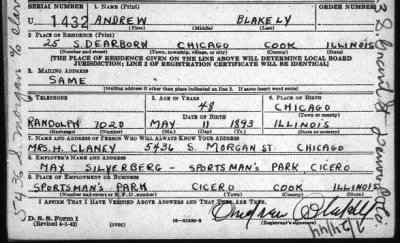 SERIAL NUMBER 1. NAME (Print) ORDER NUMBER
U 1432 ANDREW BLAKELY
(First) (Middle) (Last)
2. PLACE OF RESIDENCE (Print)
25 S. DEARBORN CHICAGO COOK ILLINOIS
(Number and street) (Town, township, village, or city) (County) (State)
[THE PLACE OF RESIDENCE GIVEN ON THE LINE ABOVE WILL DETERMINE LOCAL BOARD
JURISDICTION; LINE 2 OF REGISTRATION CERTIFICATE WILL BE IDENTICAL]
3. MAILING ADDRESS
SAME
[Mailing address if other than place indicated on line 2. If same insert word same]
4. TELEPHONE 5. AGE IN YEARS 6. PLACE OF BIRTH
48 CHICAGO
DATE OF BIRTH (Town or county)
RANDOLPH 7020 MAY 11 1893 ILLINOIS
(Exchange) (Number) (Mo.) (Day) (Yr.) (State or country)
7. NAME AND ADDRESS OF PERSON WHO WILL ALWAYS KNOW YOUR ADDRESS
MRS. H. CLANEY 5436 S. MORGAN ST. CHICAGO
8. EMPLOYER'S NAME AND ADDRESS
MAX SILVERBERG - SPORTSMAN'S PARK, CICERO
9. PLACE OF EMPLOYMENT OR BUSINESS
SPORTSMAN'S PARK CICERO COOK ILLINOIS
(Number and street or R. F. D. number) (Town) (County) (State)
I AFFIRM THAT I HAVE VERIFIED ABOVE ANSWERS AND THAT THEY ARE TRUE.
D. S. S. Form 1
(Revised 4-1-42) (over) Andrew Blakely
5436 S Morgan